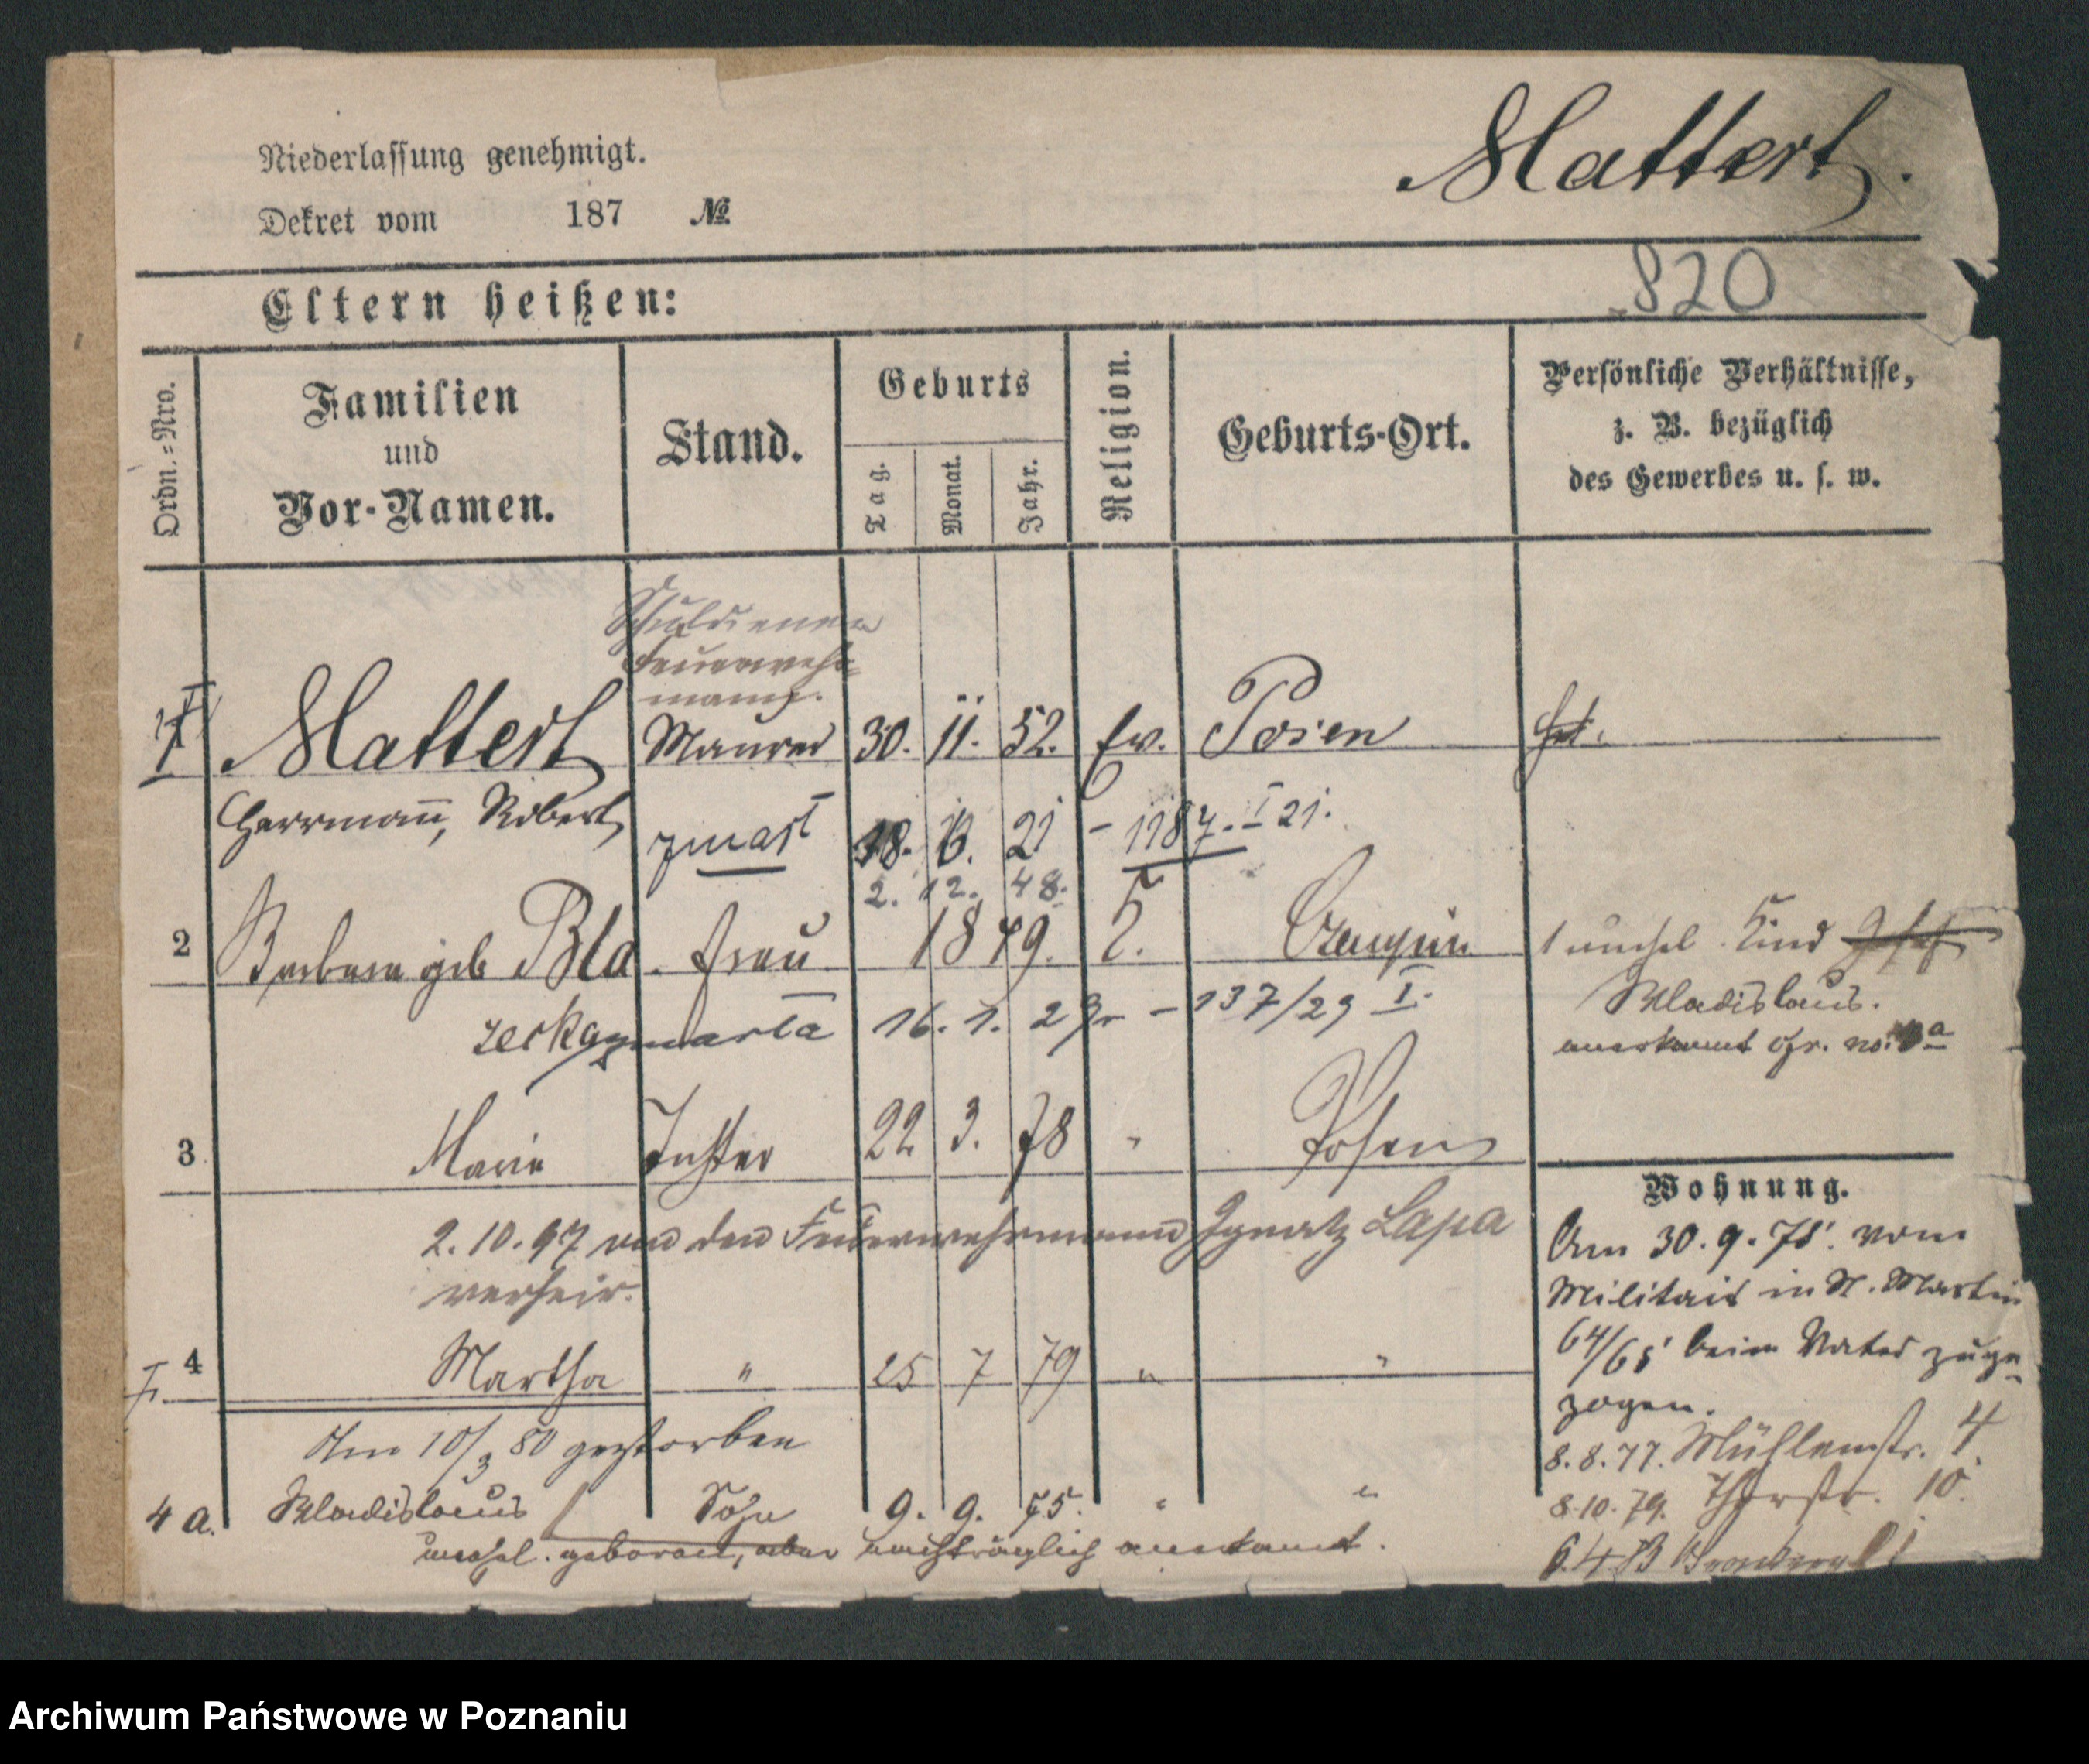 Niederlassung genehmigt.
Mattert.
Dekret vom 187 №
820
Eltern heißen:
Ordn.=Nro.
Familien
und
Vor-Namen.
Stand.
Geburts
Tag.
Monat.
Jahr.
Religion.
Geburts-Ort.
Persönliche Verhältnisse,
z. B. bezüglich
des Gewerbes u. s. w.
Schuldiener
Feuerwehr-
mann.
1 Mattert Maurer 30. 11. 52. Ev. Posen
Herrmann, Robert
zmarł 18. 21 – 1187. I 21.
2. 12. 48.
2 Barbara geb Bła- Frau 1849. 1 unehel. Kind
zeska zmarła 16. 1. 29 – 137/29 I.
Wladislaus.
anerkannt cfr. no: 4a
3 Marie Tochter 22 3. 78 " Posen
2.10.97 an den Feuerwehrmann Ignatz Lapa
verheir.
4 Martha " 25 7 79 " "
Am 10/3 80 gestorben
4 a. Wladislaus Sohn 9. 9. 75. " "
unehel. geboren, aber nachträglich anerkannt.
Wohnung.
Am 30.9.75. vom
Militair in St. Martin
64/65 beim Vater zuge-
zogen.
8.8.77. Mühlenstr. 4.
8.10.79. 10.
Archiwum Państwowe w Poznaniu